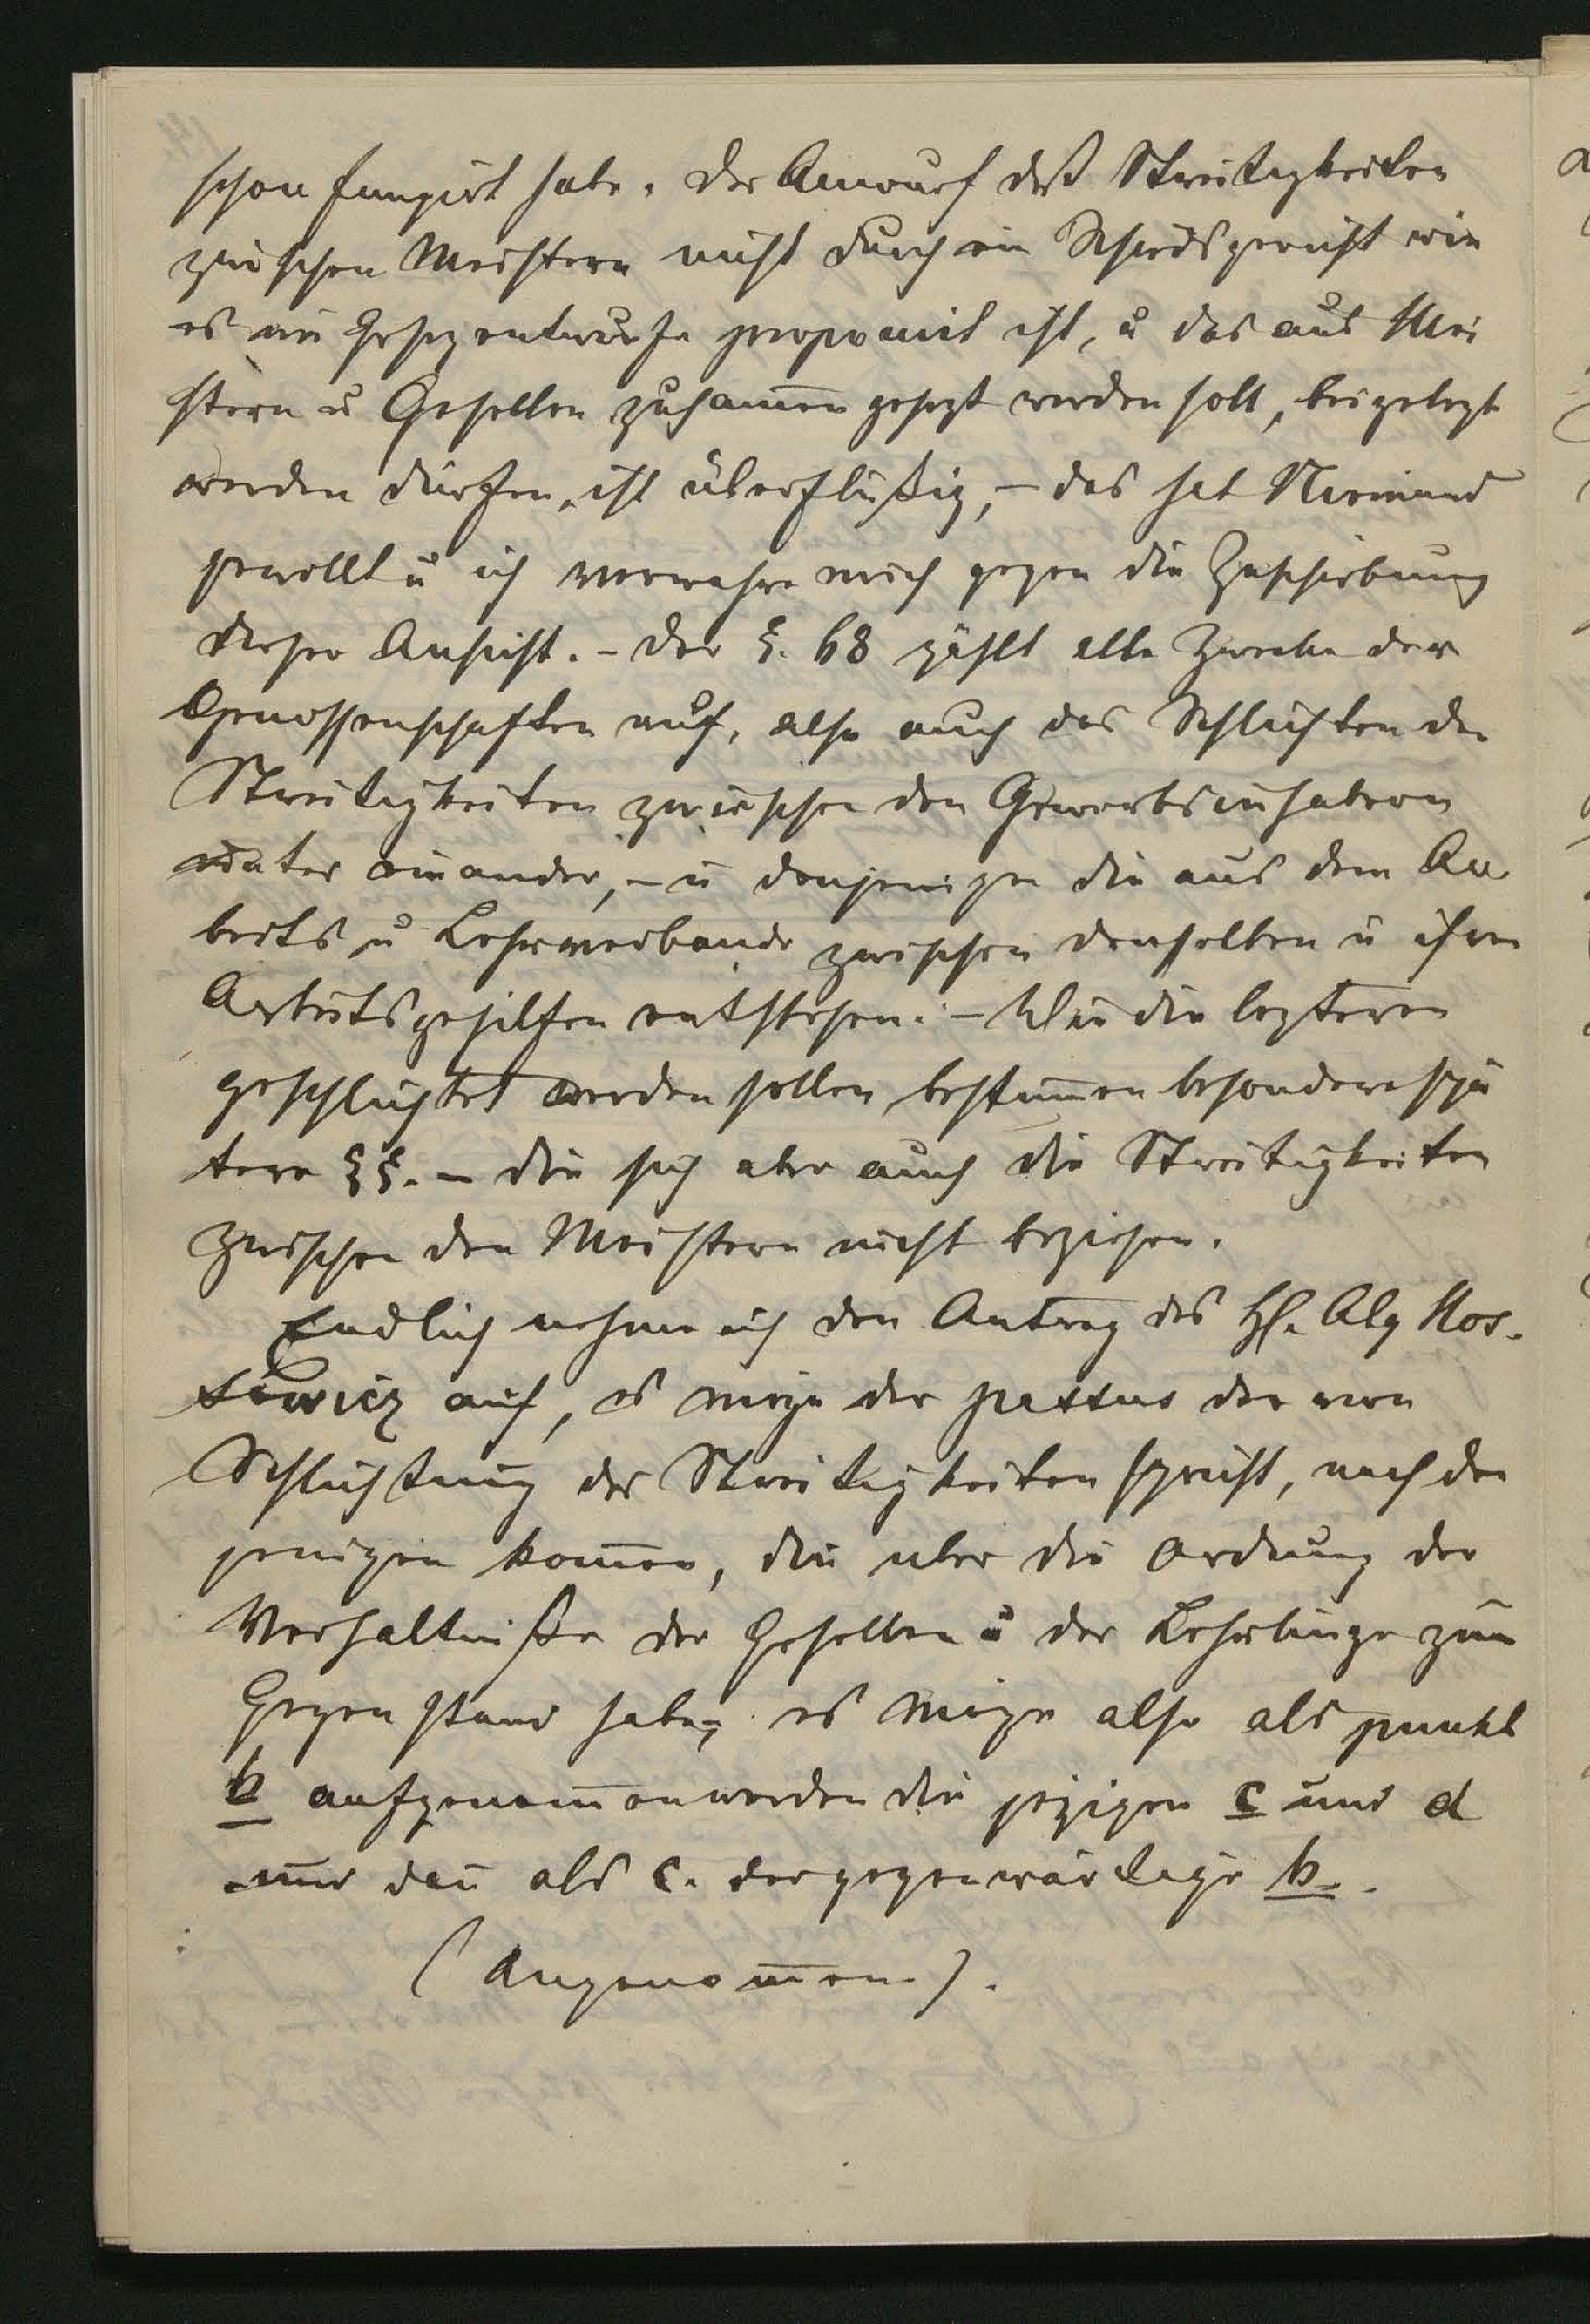 schon fungirt habe. Der Anwurf daß Streitigkeiten
zwischen Meistern nicht durch ein Schiedsgericht wie
es im Gesezentwurfe proponirt ist, u das aus Mei
stern u Gesellen zusam̄en gesezt werden soll, beigelegt
werden dürfen, ist überflüßig, – das hat Niemand
gewollt u ich verwahre mich gegen die Zuschiebung
dieser Ansicht. – Der §. 68 zählt alle Zwecke der
Genossenschaften auf, also auch das Schlichten der
Streitigkeiten zwischen den Gewerbsinhabern
unter einander, – u denjenigen die aus dem Ar
beits u Lehrverbande zwischen denselben u ihren
Arbeitsgehilfen entstehen. – Wie die lezteren
geschlichtet werden sollen bestim̄en besondere spä
tere §§. – die sich aber auch die Streitigkeiten
zwischen den Meistern nicht beziehen.
Endlich nehme ich den Antrag des H. Abg Kos-
sewicz auf, es möge der passus der von
Schlichtung der Streitigkeiten spricht, nach den
jenigen kom̄en, die uber die Ordnung der
Verhältniße der Gesellen u der Lehrlinge zum
Gegenstand haben, es möge also als punkt
b aufgenom̄en werden die jezigen c und d
und dan̄ als c. der gegenwärtige b.
(Angenom̄en.).